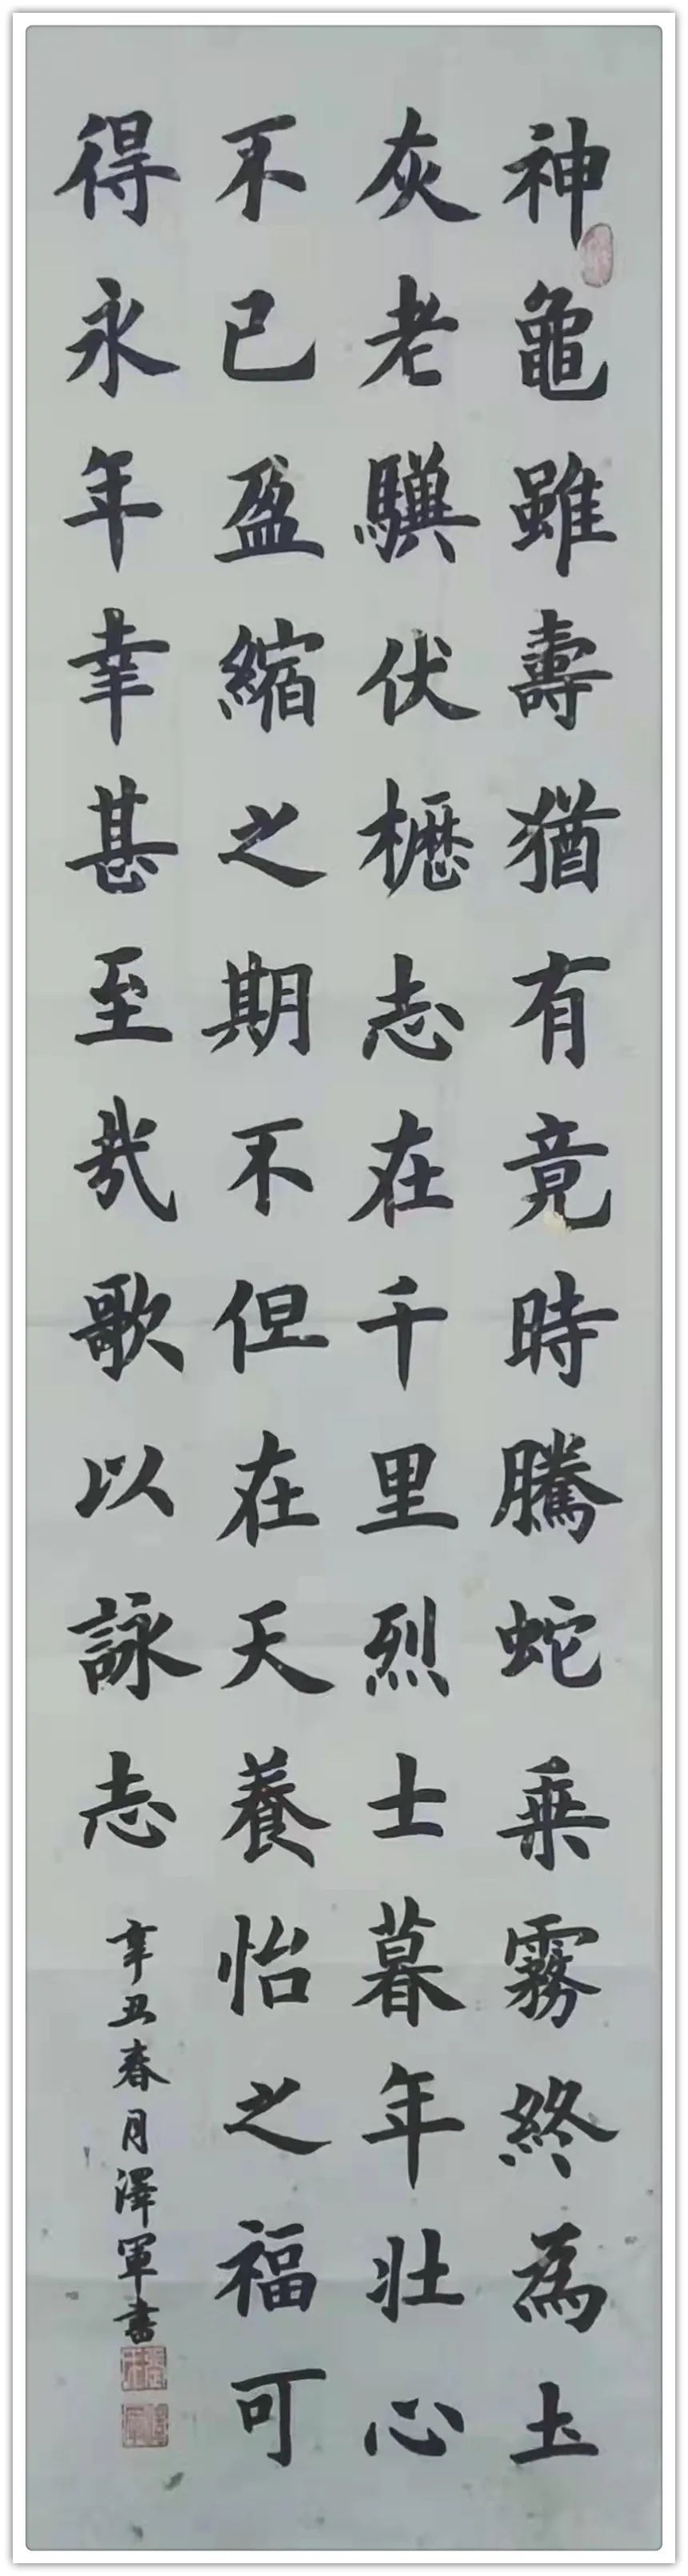 神龜雖壽猶有竟時騰蛇乗霧終為土
灰老驥伏櫪志在千里烈士暮年壯心
不已盈縮之期不但在天養怡之福可
得永年幸甚至哉歌以詠志
辛丑春月澤軍書